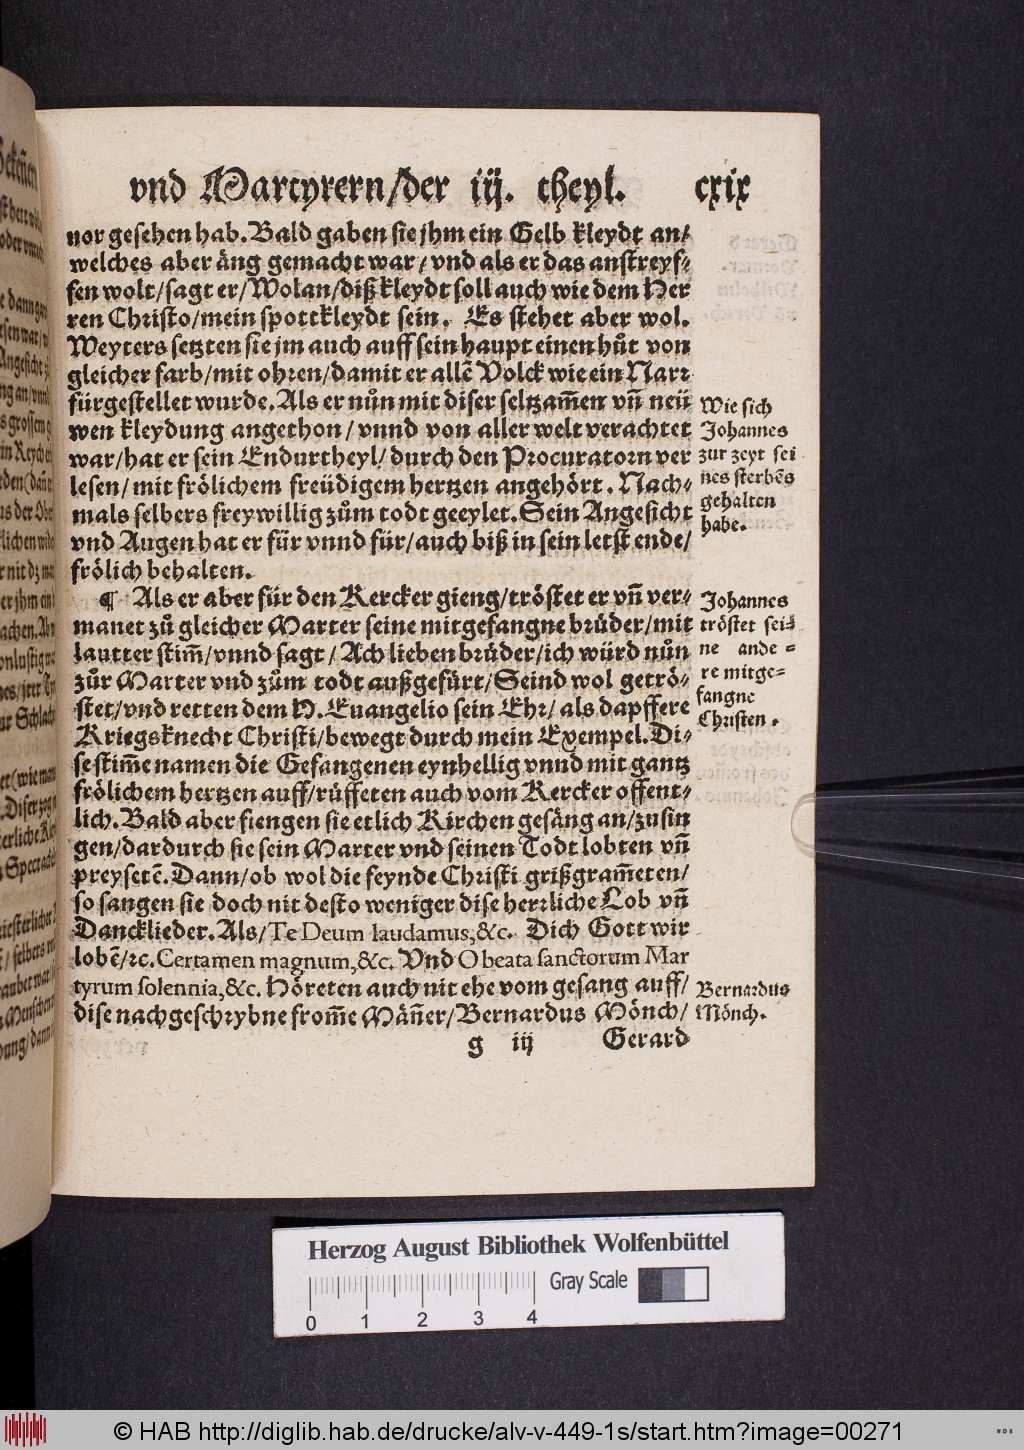 vnd Martyrern/der iij. theyl. cxix
nor gesehen hab. Bald gaben sie jhm ein Gelb kleydt an/
welches aber äng gemacht war/vnd als er das anstreyf⸗
fen wolt/sagt er/Wolan/diß kleydt soll auch wie dem Her
ren Christo/mein spottkleydt sein. Es stehet aber wol.
Weyters setzten sie jm auch auff sein haupt einen hůt von
gleicher farb/mit ohren/damit er allē Volck wie ein Narr
fürgestellet wurde. Als er nůn mit diser seltzam̄en vn̄ neü
wen kleydung angethon/vnnd von aller welt verachtet
war/hat er sein Endurtheyl/durch den Procuratorn ver
lesen/mit frölichem freüdigem hertzen angehört. Nach⸗
mals selbers freywillig zům todt geeylet. Sein Angesicht
vnd Augen hat er für vnnd für/auch biß in sein letst ende/
frölich behalten.
Wie sich
Johannes
zur zeyt sei
nes sterbēs
gehalten
habe.
¶ Als er aber für den Kercker gieng/tröstet er vn̄ ver⸗
manet zů gleicher Marter seine mitgefangne brüder/mit
lautter stim̄/vnnd sagt/Ach lieben brüder/ich würd nůn
zůr Marter vnd zům todt außgefürt/Seind wol geträ⸗
stet/vnd retten dem H. Euangelio sein Ehr/als dapffere
Kriegsknecht Christi/bewegt durch mein Exempel. Di⸗
se stim̄e namen die Gefangenen eynhellig vnnd mit gantz
frölichem hertzen auff/růffeten auch vom Kercker offent⸗
lich. Bald aber fiengen sie etlich Kirchen gesäng an/zusin
gen/dardurch sie sein Marter vnd seinen Todt lobten vn̄
preysetē. Dann/ob wol die feynde Christi grißgram̄eten/
so sangen sie doch nit desto weniger dise herrliche Lob vn̄
Dancklieder. Als/Te Deum laudamus,&c. Dich Gott wir
lobē/ꝛc. Certamen magnum,&c. Vnd O beata sanctorum Mar
tyrum solennia,&c. Höreten auch nit ehe vom gesang auff/
dise nachgeschrybne from̄e Män̄er/Bernardus Mönch/
Johannes
tröstet sei⸗
ne ande⸗
re mitge⸗
fangne
Christen.
Bernardus
Mönch.
g iij Gerard
Herzog August Bibliothek Wolfenbüttel
Gray Scale
0 1 2 3 4
© HAB http://diglib.hab.de/drucke/alv-v-449-1s/start.htm?image=00271